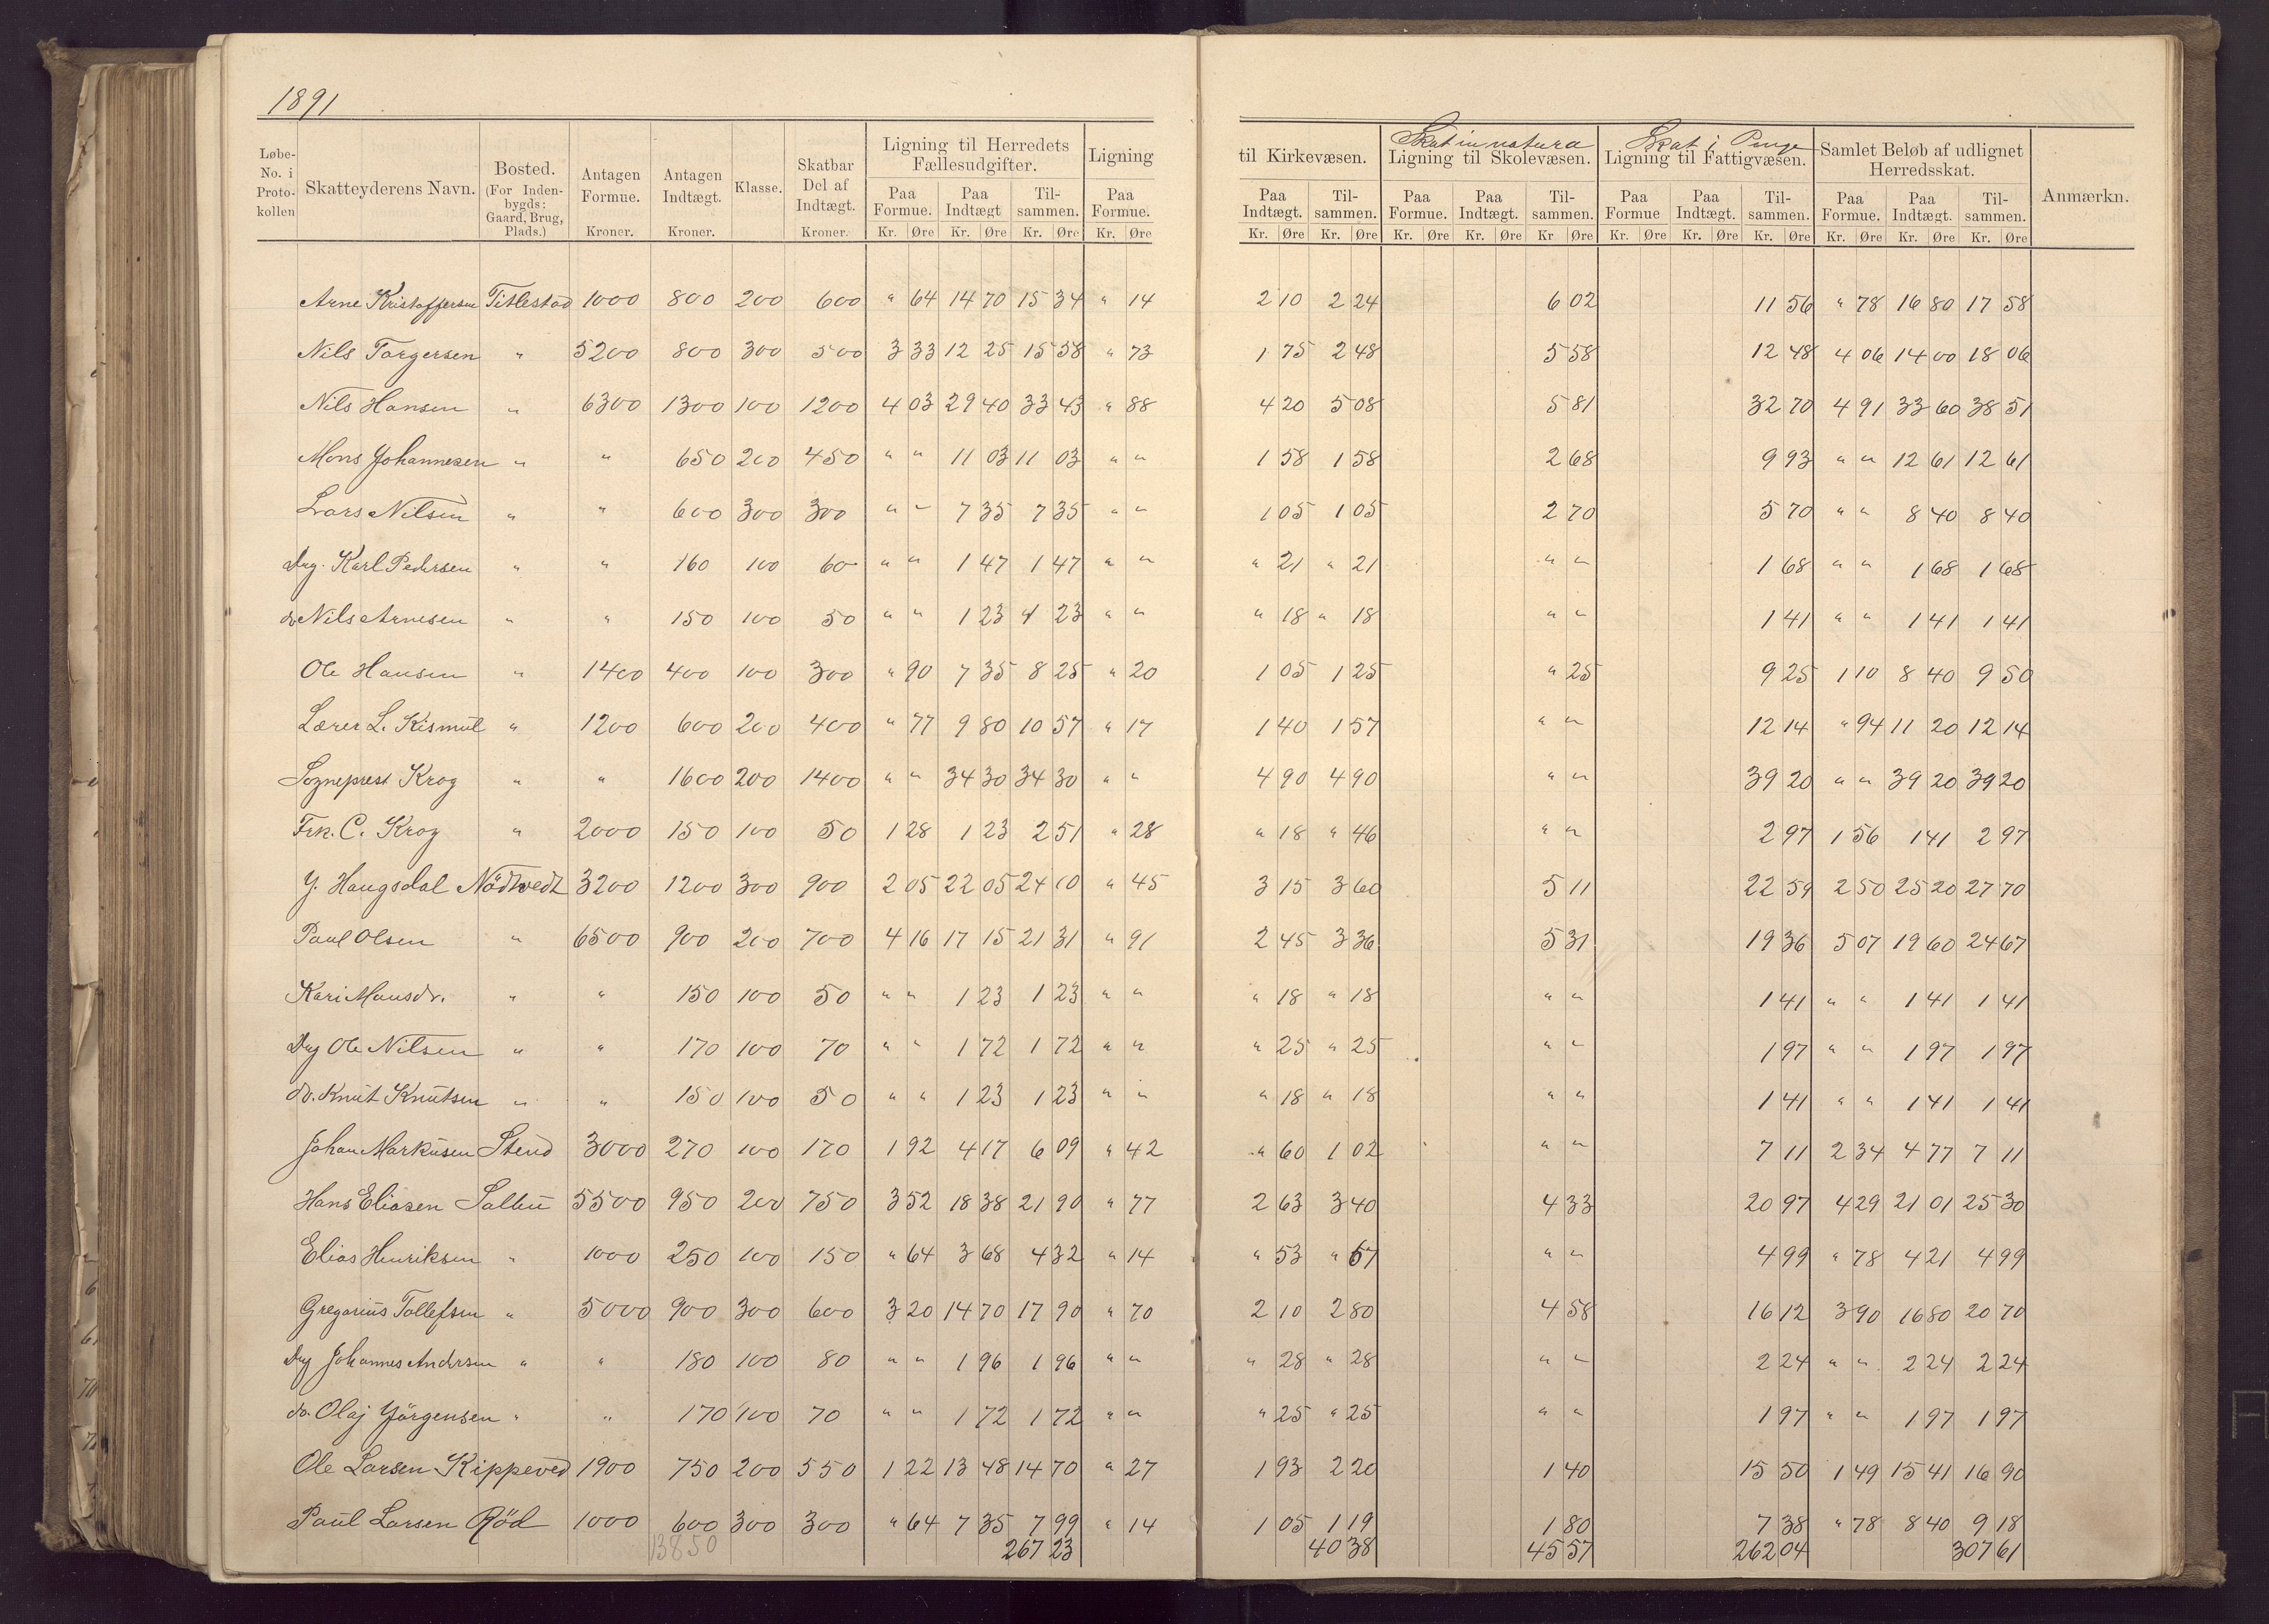 1891
Løbe-No. i Protokollen | Skatteyderens Navn. | Bosted. (For Indenbygds: Gaard, Brug, Plads.) | Antagen Formue. Kroner. | Antagen Indtægt. Kroner. | Klasse. | Skatbar Del af Indtægt. Kroner. | Ligning til Herredets Fællesudgifter. Paa Formue. Kr. Øre | Paa Indtægt Kr. Øre | Tilsammen. Kr. Øre | Ligning Paa Formue. Kr. Øre | til Kirkevæsen. Paa Indtægt. Kr. Øre | Tilsammen. Kr. Øre | Skat in natura Ligning til Skolevæsen. Paa Formue. Kr. Øre | Paa Indtægt. Kr. Øre | Tilsammen. Kr Øre | Skat i Penge Ligning til Fattigvæsen. Paa Formue Kr. Øre | Paa Indtægt. Kr. Øre | Tilsammen. Kr. Øre | Samlet Beløb af udlignet Herredsskat. Paa Formue. Kr. Øre | Paa Indtægt. Kr. Øre | Tilsammen. Kr. Øre | Anmærkn.
Arne Kristoffersen Titlestad 1000 800 200 600 " 64 14 70 15 34 " 14 2 10 2 24 6 02 11 56 " 78 16 80 17 58
Nils Torgersen " 5200 800 300 500 3 33 12 25 15 58 " 73 1 75 2 48 5 58 12 48 4 06 14 00 18 06
Nils Hansen " 6300 1300 100 1200 4 03 29 40 33 43 " 88 4 20 5 08 5 81 32 70 4 91 33 60 38 51
Mons Johannesen " " 650 200 450 " " 11 03 11 03 " " 1 58 1 58 2 68 9 93 " " 12 61 12 61
Lars Nilsen " " 600 300 300 " " 7 35 7 35 " " 1 05 1 05 2 70 5 70 " " 8 40 8 40
Drg. Karl Pedersen " " 160 100 60 " " 1 47 1 47 " " " 21 " 21 " " 1 68 " " 1 68 1 68
do Nils Arnesen " " 150 100 50 " " 1 23 1 23 " " " 18 " 18 " " 1 41 " " 1 41 1 41
Ole Hansen " 1400 400 100 300 " 90 7 35 8 25 " 20 1 05 1 25 " 25 9 25 1 10 8 40 9 50
Lærer L. Kismul " 1200 600 200 400 " 77 9 80 10 57 " 17 1 40 1 57 " " 12 14 " 94 11 20 12 14
Sogneprest Krog " " 1600 200 1400 " " 34 30 34 30 " " 4 90 4 90 " " 39 20 " " 39 20 39 20
Frk. C. Krog " 2000 150 100 50 1 28 1 23 2 51 " 28 " 18 " 46 " " 2 97 1 56 1 41 2 97
Y. Haugsdal Nödtvedt 3200 1200 300 900 2 05 22 05 24 10 " 45 3 15 3 60 5 11 22 59 2 50 25 20 27 70
Paul Olsen " 6500 900 200 700 4 16 17 15 21 31 " 91 2 45 3 36 5 31 19 36 5 07 19 60 24 67
Kari Monsdr. " " 150 100 50 " " 1 23 1 23 " " " 18 " 18 " " 1 41 " " 1 41 1 41
Drg Ole Nilsen " " 170 100 70 " " 1 72 1 72 " " " 25 " 25 " " 1 97 " " 1 97 1 97
do. Knut Knutsen " " 150 100 50 " " 1 23 1 23 " " " 18 " 18 " " 1 41 " " 1 41 1 41
Johan Markusen Stend 3000 270 100 170 1 92 4 17 6 09 " 42 " 60 1 02 " " 7 11 2 34 4 77 7 11
Hans Eliasen Salbu 5500 950 200 750 3 52 18 38 21 90 " 77 2 63 3 40 4 33 20 97 4 29 21 01 25 30
Elias Henriksen " 1000 250 100 150 " 64 3 68 4 32 " 14 " 53 " 67 " " 4 99 " 78 4 21 4 99
Gregorius Tollefsen " 5000 900 300 600 3 20 14 70 17 90 " 70 2 10 2 80 4 58 16 12 3 90 16 80 20 70
Drg Johannes Andersen " " 180 100 80 " " 1 96 1 96 " " " 28 " 28 " " 2 24 " " 2 24 2 24
do. Olaj Jörgensen " " 170 100 70 " " 1 72 1 72 " " " 25 " 25 " " 1 97 " " 1 97 1 97
Ole Larsen Kippeved 1900 750 200 550 1 22 13 48 14 70 " 27 1 93 2 20 1 40 15 50 1 49 15 41 16 90
Paul Larsen Röd 1000 600 300 300 " 64 7 35 7 99 " 14 1 05 1 19 1 80 7 38 " 78 8 40 9 18
13850 267 23 40 38 45 57 262 04 307 61